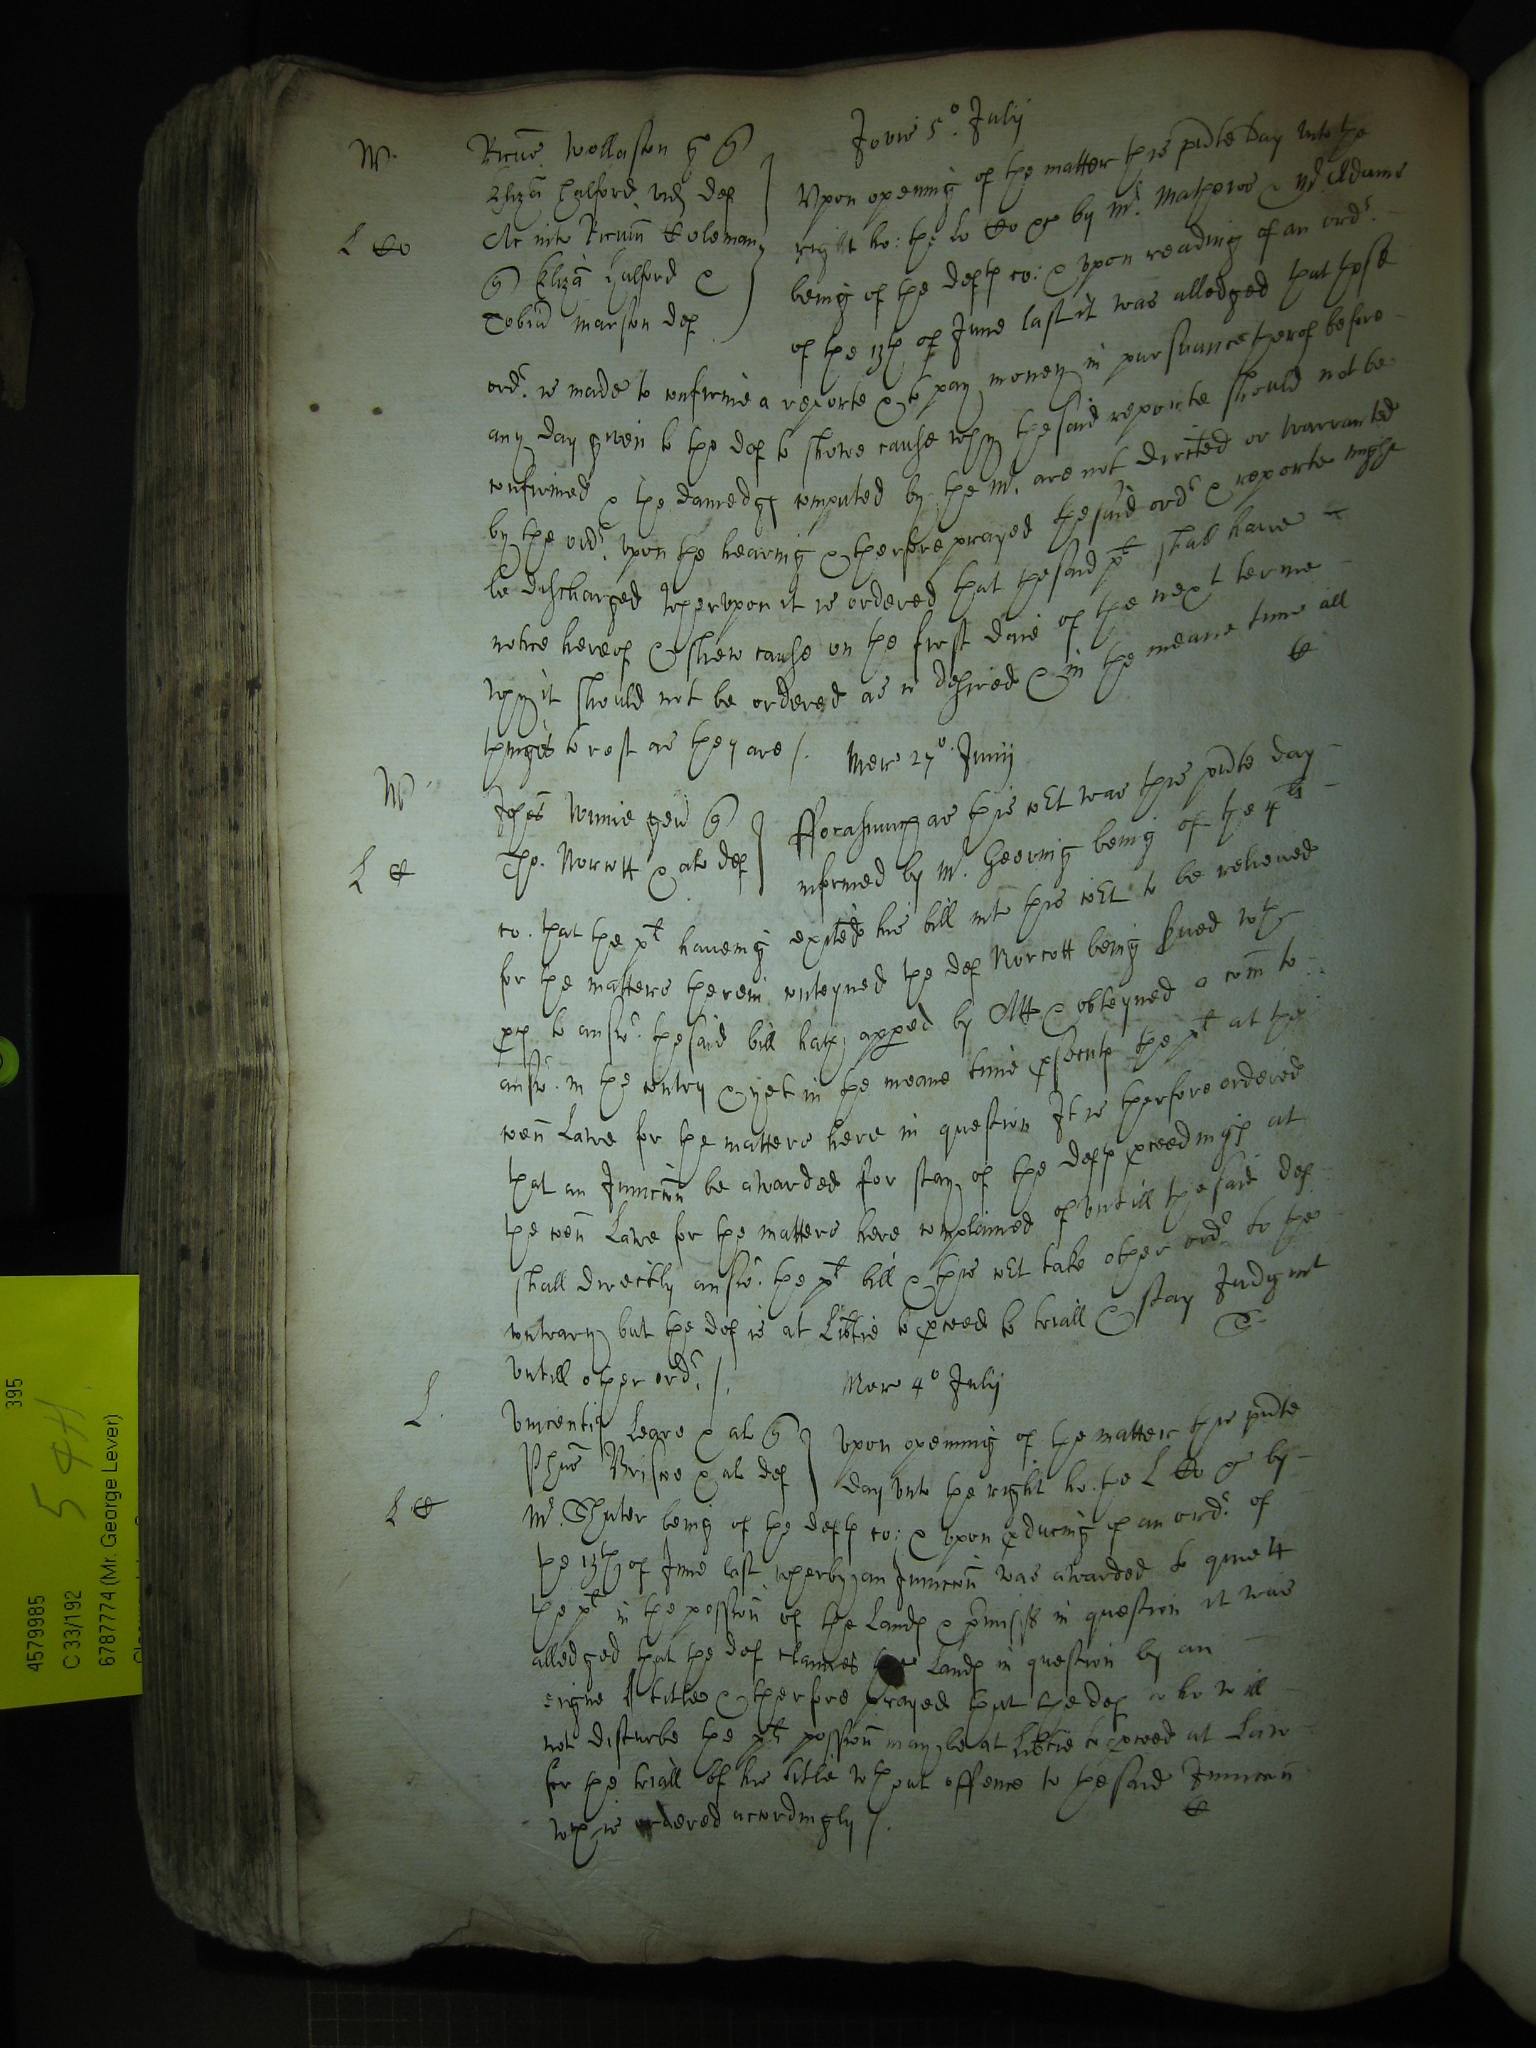 Jovis 5o. July
W. Ricus Wollaston gen q
Eliza Halford vid def
L Co Ac inter Ricum Coleman
q Eliza Halford &
Tobia Marson def
Upon opening of the matter this pnte day unto the
right ho: the Lo Co &c by Mr. Mathewes & Mr. Adams
being of the defts co: & upon reading of an ordr.
of the 13th of June last it was alledged that the
ordr. is made to confirme a reporte & to pay money in pursuance therof before
any day given to the def to shewe cause why the said reporte should not be
confirmed & the damedges computed by the Mr. are not directed or warranted
by the ordr. upon the hearing & therfore prayed the said ordr & reporte might
be discharged wherupon it is ordered that the said plt shall have
notice hereof & shew cause on the first daie of the next terme
why it should not be ordered as is desired & in the meane time all
things to rest as they are /.
Mer 27o. Junij
W. Johes Winne gen q
L Tho. Norcott & al def
fforasmuch as this cot was this pnte day
informed by Mr. Geering being of the plts
co. that the plt haveing exhited his bill into this cot to be relieved
for the matters therein conteyned the def Norcott being served wth
pces to answr. the said bill hath apped by Att & obteyned a com to
answr. in the contry & yet in the meane time psecuts the plt at the
coen Lawe for the matters here in question It is therfore ordered
that an Iniuncon be awarded for stay of the defts pceedings at
the coen Lawe for the matters here complained of untill the said def
shall directly answr. the plts bill & this cot take other ordr to the
contrary but the def is at Libtie to pceed to triall & stay Judgmt
untill other ordr. /.
Mer 4o July
L. Vincentius Leare & al q
Phus Briscoe & al def
L
Upon opening of the matter this pnte
day unto the right ho. the L Co &c by
Mr. Shuter being of the defts co: & upon pducing of an ordr. of
the 13th of June last wherby an Iniuncon was awarded to quiett
the plt in the possion of the Lands & pmisses in question it was
alledged that the def claimes the Lands in question by an
eigne title & therfore prayed that the def who will
not disturbe the plts possion may be at Libtie to pceed at Law
for the triall of his title wthout offence to the said Iniuncon
wch is ordered accordingly /.
395
54H
4579985
C 33/192
6787774 (Mr. George Lever)